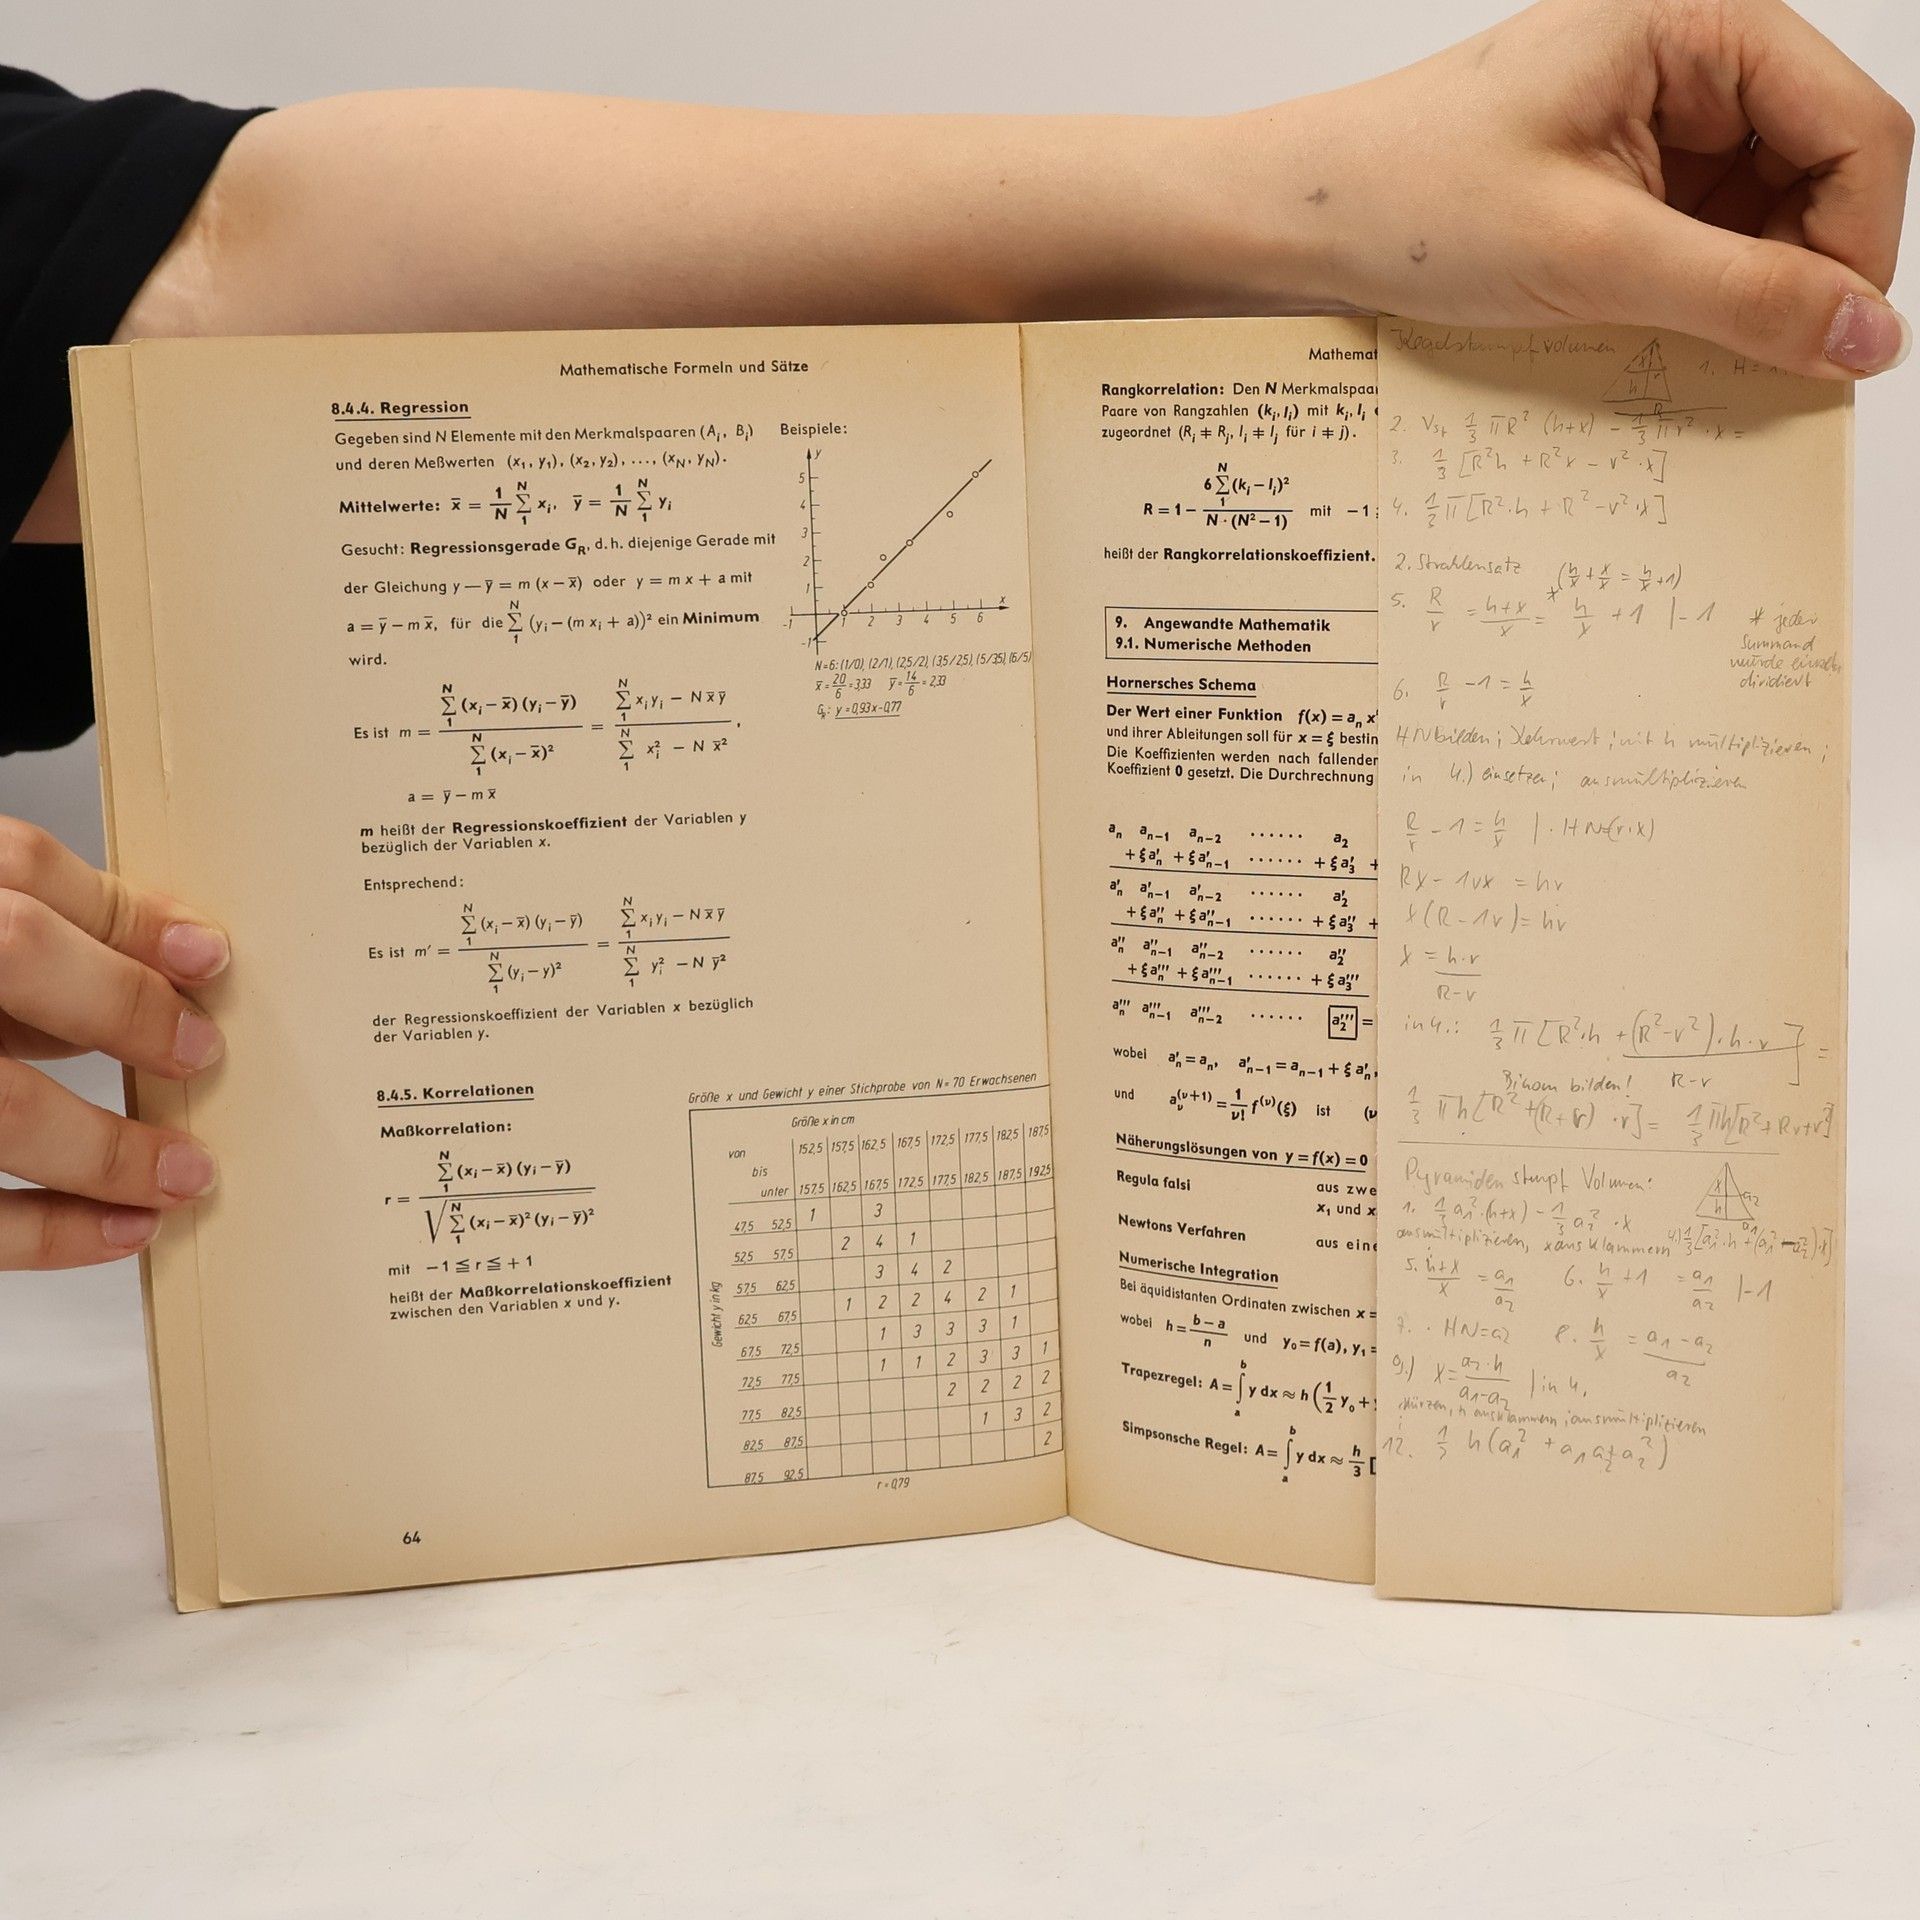 Mathematische Formeln und Sätze
8.4.4. Regression
Gegeben sind N Elemente mit den Merkmalspaaren (Aᵢ, Bᵢ)
und deren Meßwerten (x₁, y₁), (x₂, y₂), ..., (x_N, y_N).
Mittelwerte: x̄ = 1/N Σ₁ᴺ xᵢ, ȳ = 1/N Σ₁ᴺ yᵢ
Gesucht: Regressionsgerade G_R, d. h. diejenige Gerade mit
der Gleichung y — ȳ = m (x — x̄) oder y = m x + a mit
a = ȳ — m x̄, für die Σ₁ᴺ (yᵢ — (m xᵢ + a))² ein Minimum
wird.
Es ist m = Σ₁ᴺ (xᵢ — x̄) (yᵢ — ȳ) / Σ₁ᴺ (xᵢ — x̄)² = Σ₁ᴺ xᵢ yᵢ — N x̄ ȳ / Σ₁ᴺ xᵢ² — N x̄²,
a = ȳ — m x̄
m heißt der Regressionskoeffizient der Variablen y
bezüglich der Variablen x.
Entsprechend:
Es ist m' = Σ₁ᴺ (xᵢ — x̄) (yᵢ — ȳ) / Σ₁ᴺ (yᵢ — y)² = Σ₁ᴺ xᵢ yᵢ — N x̄ ȳ / Σ₁ᴺ yᵢ² — N ȳ²
der Regressionskoeffizient der Variablen x bezüglich
der Variablen y.
Beispiele:
y
5
4
3
2
1
-1
-1 1 2 3 4 5 6 x
N=6: (1/0), (2/1), (2,5/2), (3,5/2,5), (5/3,5), (6/5)
x̄ = 20/6 = 3,33 ȳ = 14/6 = 2,33
G_R: y = 0,93x - 0,77
8.4.5. Korrelationen
Maßkorrelation:
r = Σ₁ᴺ (xᵢ — x̄) (yᵢ — ȳ) / √Σ₁ᴺ (xᵢ — x̄)² (yᵢ — ȳ)²
mit —1 ≦ r ≦ + 1
heißt der Maßkorrelationskoeffizient
zwischen den Variablen x und y.
Größe x und Gewicht y einer Stichprobe von N = 70 Erwachsenen
Größe x in cm
von 152,5 157,5 162,5 167,5 172,5 177,5 182,5 187,5
bis
unter 157,5 162,5 167,5 172,5 177,5 182,5 187,5 192,5
Gewicht y in kg
47,5 52,5 1 3
52,5 57,5 2 4 1
57,5 62,5 3 4 2
62,5 67,5 1 2 2 4 2 1
67,5 72,5 1 3 3 3 1
72,5 77,5 1 1 2 3 3 1
77,5 82,5 2 2 2 2
82,5 87,5 1 3 2
87,5 92,5 2
r = 0,79
64
Mathemat
Rangkorrelation: Den N Merkmalspaar
Paare von Rangzahlen (kᵢ, lᵢ) mit kᵢ, lᵢ
zugeordnet (Rᵢ ≠ Rⱼ, lᵢ ≠ lⱼ für i ≠ j).
R = 1 — 6 Σ₁ᴺ (kᵢ — lᵢ)² / N · (N² — 1) mit —1
heißt der Rangkorrelationskoeffizient.
9. Angewandte Mathematik
9.1. Numerische Methoden
Hornersches Schema
Der Wert einer Funktion f(x) = aₙ x
und ihrer Ableitungen soll für x = ξ bestin
Die Koeffizienten werden nach fallender
Koeffizient 0 gesetzt. Die Durchrechnung
aₙ aₙ₋₁ aₙ₋₂ ...... a₂
+ ξ a'ₙ + ξ a'ₙ₋₁ ...... + ξ a'₃ +
a'ₙ a'ₙ₋₁ a'ₙ₋₂ ...... a'₂
+ ξ a''ₙ + ξ a''ₙ₋₁ ...... + ξ a''₃ +
a''ₙ a''ₙ₋₁ a''ₙ₋₂ ...... a''₂
+ ξ a'''ₙ + ξ a'''ₙ₋₁ ...... + ξ a'''₃
a'''ₙ a'''ₙ₋₁ a'''ₙ₋₂ ...... a'''₂ =
wobei a'ₙ = aₙ, a'ₙ₋₁ = aₙ₋₁ + ξ a'ₙ,
und a_ν^(ν+1) = 1/ν! f^(ν)(ξ) ist (ν
Näherungslösungen von y = f(x) = 0
Regula falsi aus zwe
x₁ und x
Newtons Verfahren aus eine
Numerische Integration
Bei äquidistanten Ordinaten zwischen x =
wobei h = b — a / n und y₀ = f(a), y₁ =
Trapezregel: A = ∫ₐᵇ y dx ≈ h (1/2 y₀ +
Simpsonsche Regel: A = ∫ₐᵇ y dx ≈ h/3 [
Kegelstumpf volumen
1. H =
2. V_St 1/3 π R² (h+x) - 1/3 π r² · x =
3. 1/3 [R²h + R²x - r² · x]
4. 1/3 π [R² · h + R² - r² · x]
2. Strahlensatz (h/x + x/x = h/x + 1)
5. R/r = h+x/x = * h/x + 1 | - 1
* jeder
Summand
wurde einzeln
dividiert
6. R/r - 1 = h/x
HN bilden; Kehrwert; mit h multiplizieren;
in 4.) einsetzen; ausmultiplizieren
R/r - 1 = h/x | · HN (r·x)
Rx - 1rx = hr
x (R - 1r) = hr
x = h·r / R-r
in 4.: 1/3 π [R²·h + (R²-r²)·h·r / R-r] =
Binom bilden!
1/3 πh [R² + (R+r) · r] = 1/3 πh [R² + Rr + r²]
Pyramiden stumpf Volumen:
1. 1/3 a₁² · (h+x) - 1/3 a₂² · x
ausmultiplizieren, x ausklammern 4.) 1/3 [a₁² · h + (a₁² - a₂²) · x]
5. h+x/x = a₁/a₂ 6. h/x + 1 = a₁/a₂ | - 1
7. · HN = a₂ 8. h/x = a₁ - a₂ / a₂
9.) x = a₂·h / a₁-a₂ | in 4.
kürzen, h ausklammern; ausmultiplizieren
12. 1/3 h (a₁² + a₁ a₂ + a₂²)